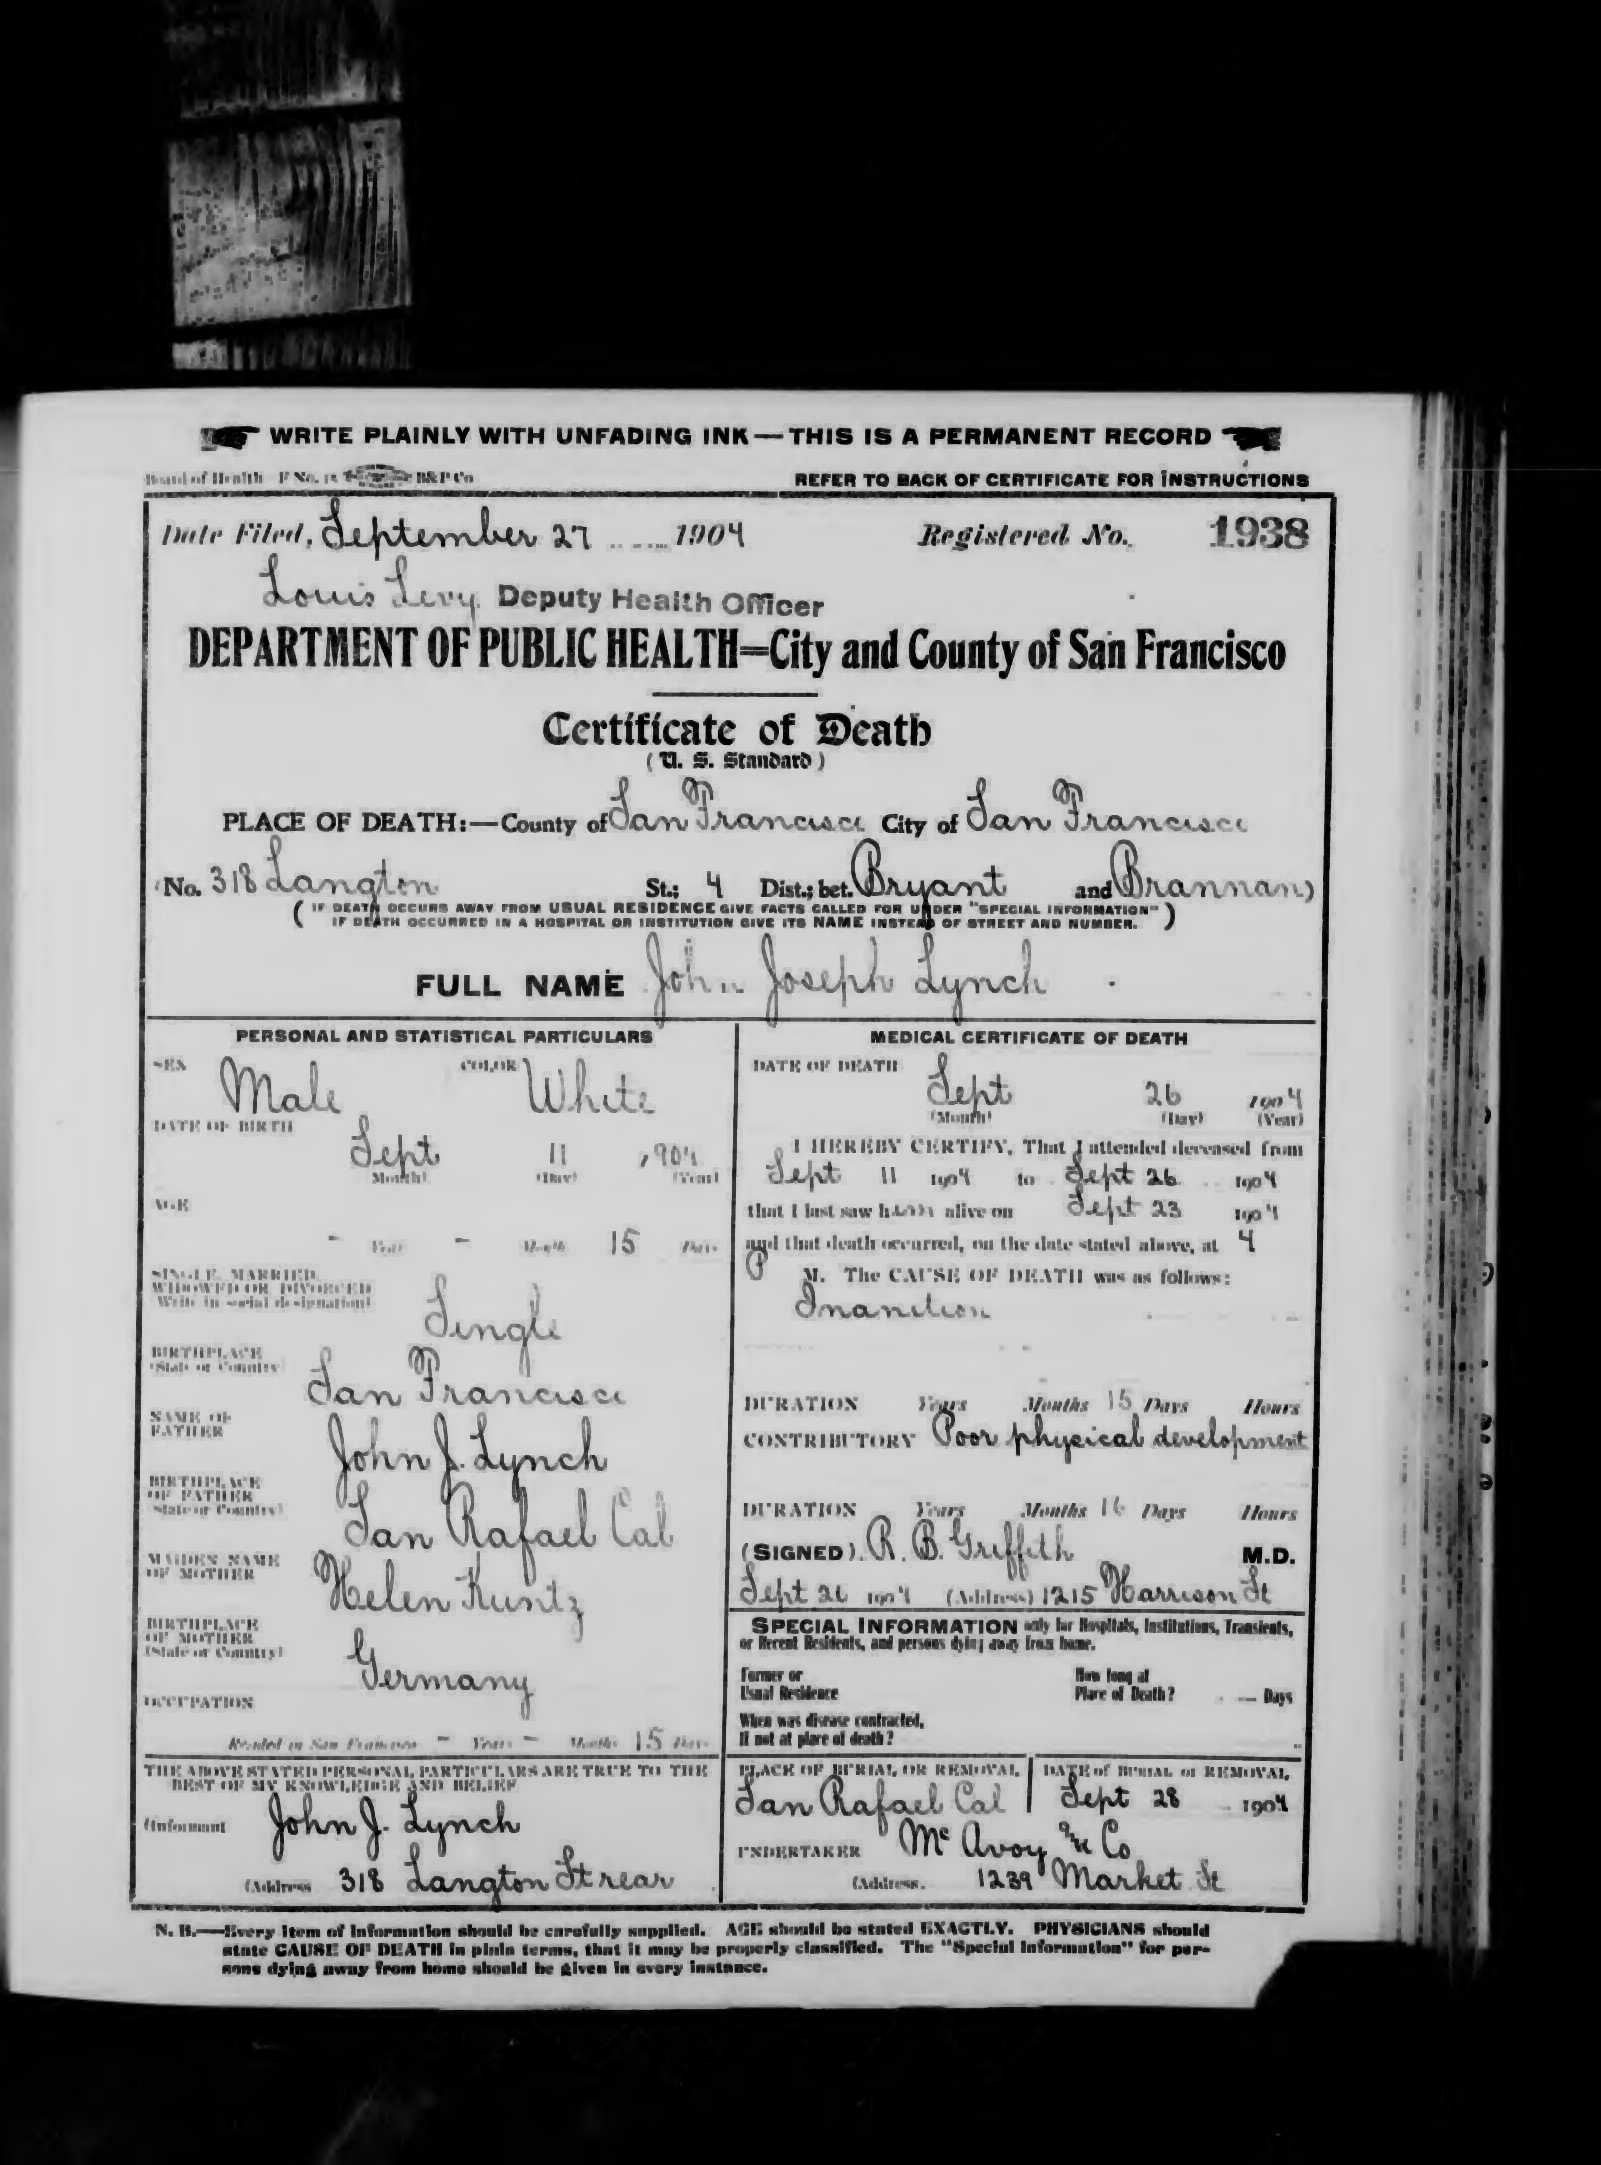 WRITE PLAINLY WITH UNFADING INK — THIS IS A PERMANENT RECORD
Board of Health F No. 15 B&P Co
REFER TO BACK OF CERTIFICATE FOR INSTRUCTIONS
Date Filed, September 27 1904 Registered No. 1938
Louis Levy Deputy Health Officer
DEPARTMENT OF PUBLIC HEALTH=City and County of San Francisco
Certificate of Death
(U. S. Standard)
PLACE OF DEATH:—County of San Francisco City of San Francisco
(No. 318 Langton St.; 4 Dist.; bet. Bryant and Brannan)
( IF DEATH OCCURS AWAY FROM USUAL RESIDENCE GIVE FACTS CALLED FOR UNDER "SPECIAL INFORMATION"
IF DEATH OCCURRED IN A HOSPITAL OR INSTITUTION GIVE ITS NAME INSTEAD OF STREET AND NUMBER. )
FULL NAME John Joseph Lynch
PERSONAL AND STATISTICAL PARTICULARS
SEX Male COLOR White
DATE OF BIRTH
Sept 11 1904
(Month) (Day) (Year)
AGE
- Years - Months 15 Days
SINGLE, MARRIED,
WIDOWED OR DIVORCED
(Write in social designation)
Single
BIRTHPLACE
(State or Country)
San Francisco
NAME OF
FATHER
John J. Lynch
BIRTHPLACE
OF FATHER
(State or Country)
San Rafael Cal
MAIDEN NAME
OF MOTHER
Helen Kuntz
BIRTHPLACE
OF MOTHER
(State or Country)
Germany
OCCUPATION
Resided in San Francisco - Years - Months 15 Days
THE ABOVE STATED PERSONAL PARTICULARS ARE TRUE TO THE
BEST OF MY KNOWLEDGE AND BELIEF
(Informant John J. Lynch
(Address 318 Langton St rear
MEDICAL CERTIFICATE OF DEATH
DATE OF DEATH
Sept 26 1904
(Month) (Day) (Year)
I HEREBY CERTIFY, That I attended deceased from
Sept 11 1904 to Sept 26 1904
that I last saw him alive on Sept 23 1904
and that death occurred, on the date stated above, at 4
P M. The CAUSE OF DEATH was as follows:
Inanition
DURATION Years Months 15 Days Hours
CONTRIBUTORY Poor physical development
DURATION Years Months Days Hours
(SIGNED) R. B. Griffith M.D.
Sept 26 1904 (Address) 1215 Harrison St
SPECIAL INFORMATION only for Hospitals, Institutions, Transients,
or Recent Residents, and persons dying away from home.
Former or
Usual Residence
How long at
Place of Death? — Days
When was disease contracted,
If not at place of death?
PLACE OF BURIAL OR REMOVAL
San Rafael Cal
DATE of BURIAL or REMOVAL
Sept 28 1904
UNDERTAKER McAvoy & Co
(Address. 1239 Market St
N. B.—Every item of information should be carefully supplied. AGE should be stated EXACTLY. PHYSICIANS should
state CAUSE OF DEATH in plain terms, that it may be properly classified. The "Special Information" for per-
sons dying away from home should be given in every instance.